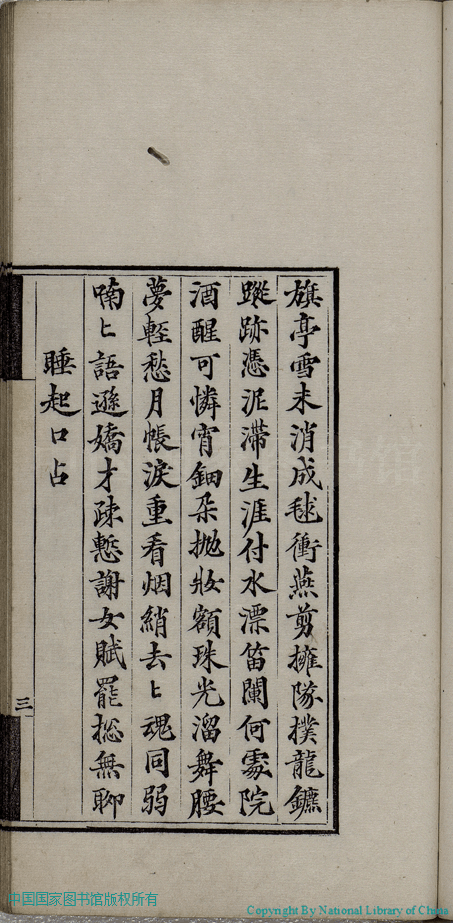 旗亭雪未消成毬衝燕剪擁隊撲龍鑣
蹤跡憑泥滯生涯付水漂笛闌何處院
酒醒可憐宵鈿朶拋妝額珠光溜舞腰
夢輕愁月帳淚重看烟綃去〻魂同弱
喃〻語遜嬌才疎慙謝女賦罷揔無聊
睡起口占
三
中国国家图书馆版权所有
Copyright By National Library of China